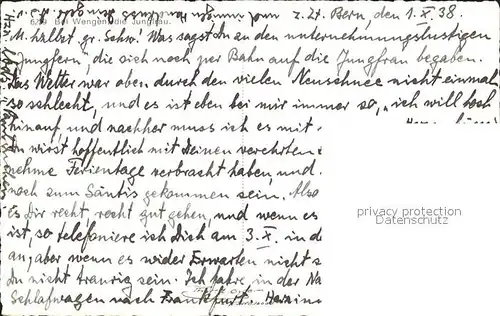 z. Zt. Bern, den 1. X. 38.
6219 Bei Wengen die Jungfrau.
M. hzllst. gr. Schw.! Was sagst Du zu den unternehmungslustigen
Jungfern, die sich noch per Bahn auf die Jungfrau begaben.
Das Wetter war oben durch den vielen Neuschnee nicht einmal
so schlecht, und es ist eben bei mir immer so, „ich will hoch
hinauf und nachher muss ich es mit
Du wirst hoffentlich mit Deinen verehrten
nehme Ferientage verbracht haben, und
noch zum Säntis gekommen sein. Also
es Dir recht, recht gut gehen, und wenn es
ist, so telefoniere ich Dich am 3. X. in d
an, aber wenn es wider Erwarten nicht s
Du nicht traurig sein. Ich fahre in der Na
Schlafwagen nach Frankfurt.
privacy protection
watermark